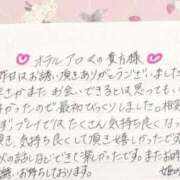 ホテルアロ〆の貴方様
昨日はお誘い頂きありがとうございました
さかまたお会いできるとは思っても
かったので最初びっくりしました
プレイではたくさん気持ち良くなっ
気持ち良くして頂き嬉しかったです
の話しなどできて楽しかったです。またお時
お待ちしております。